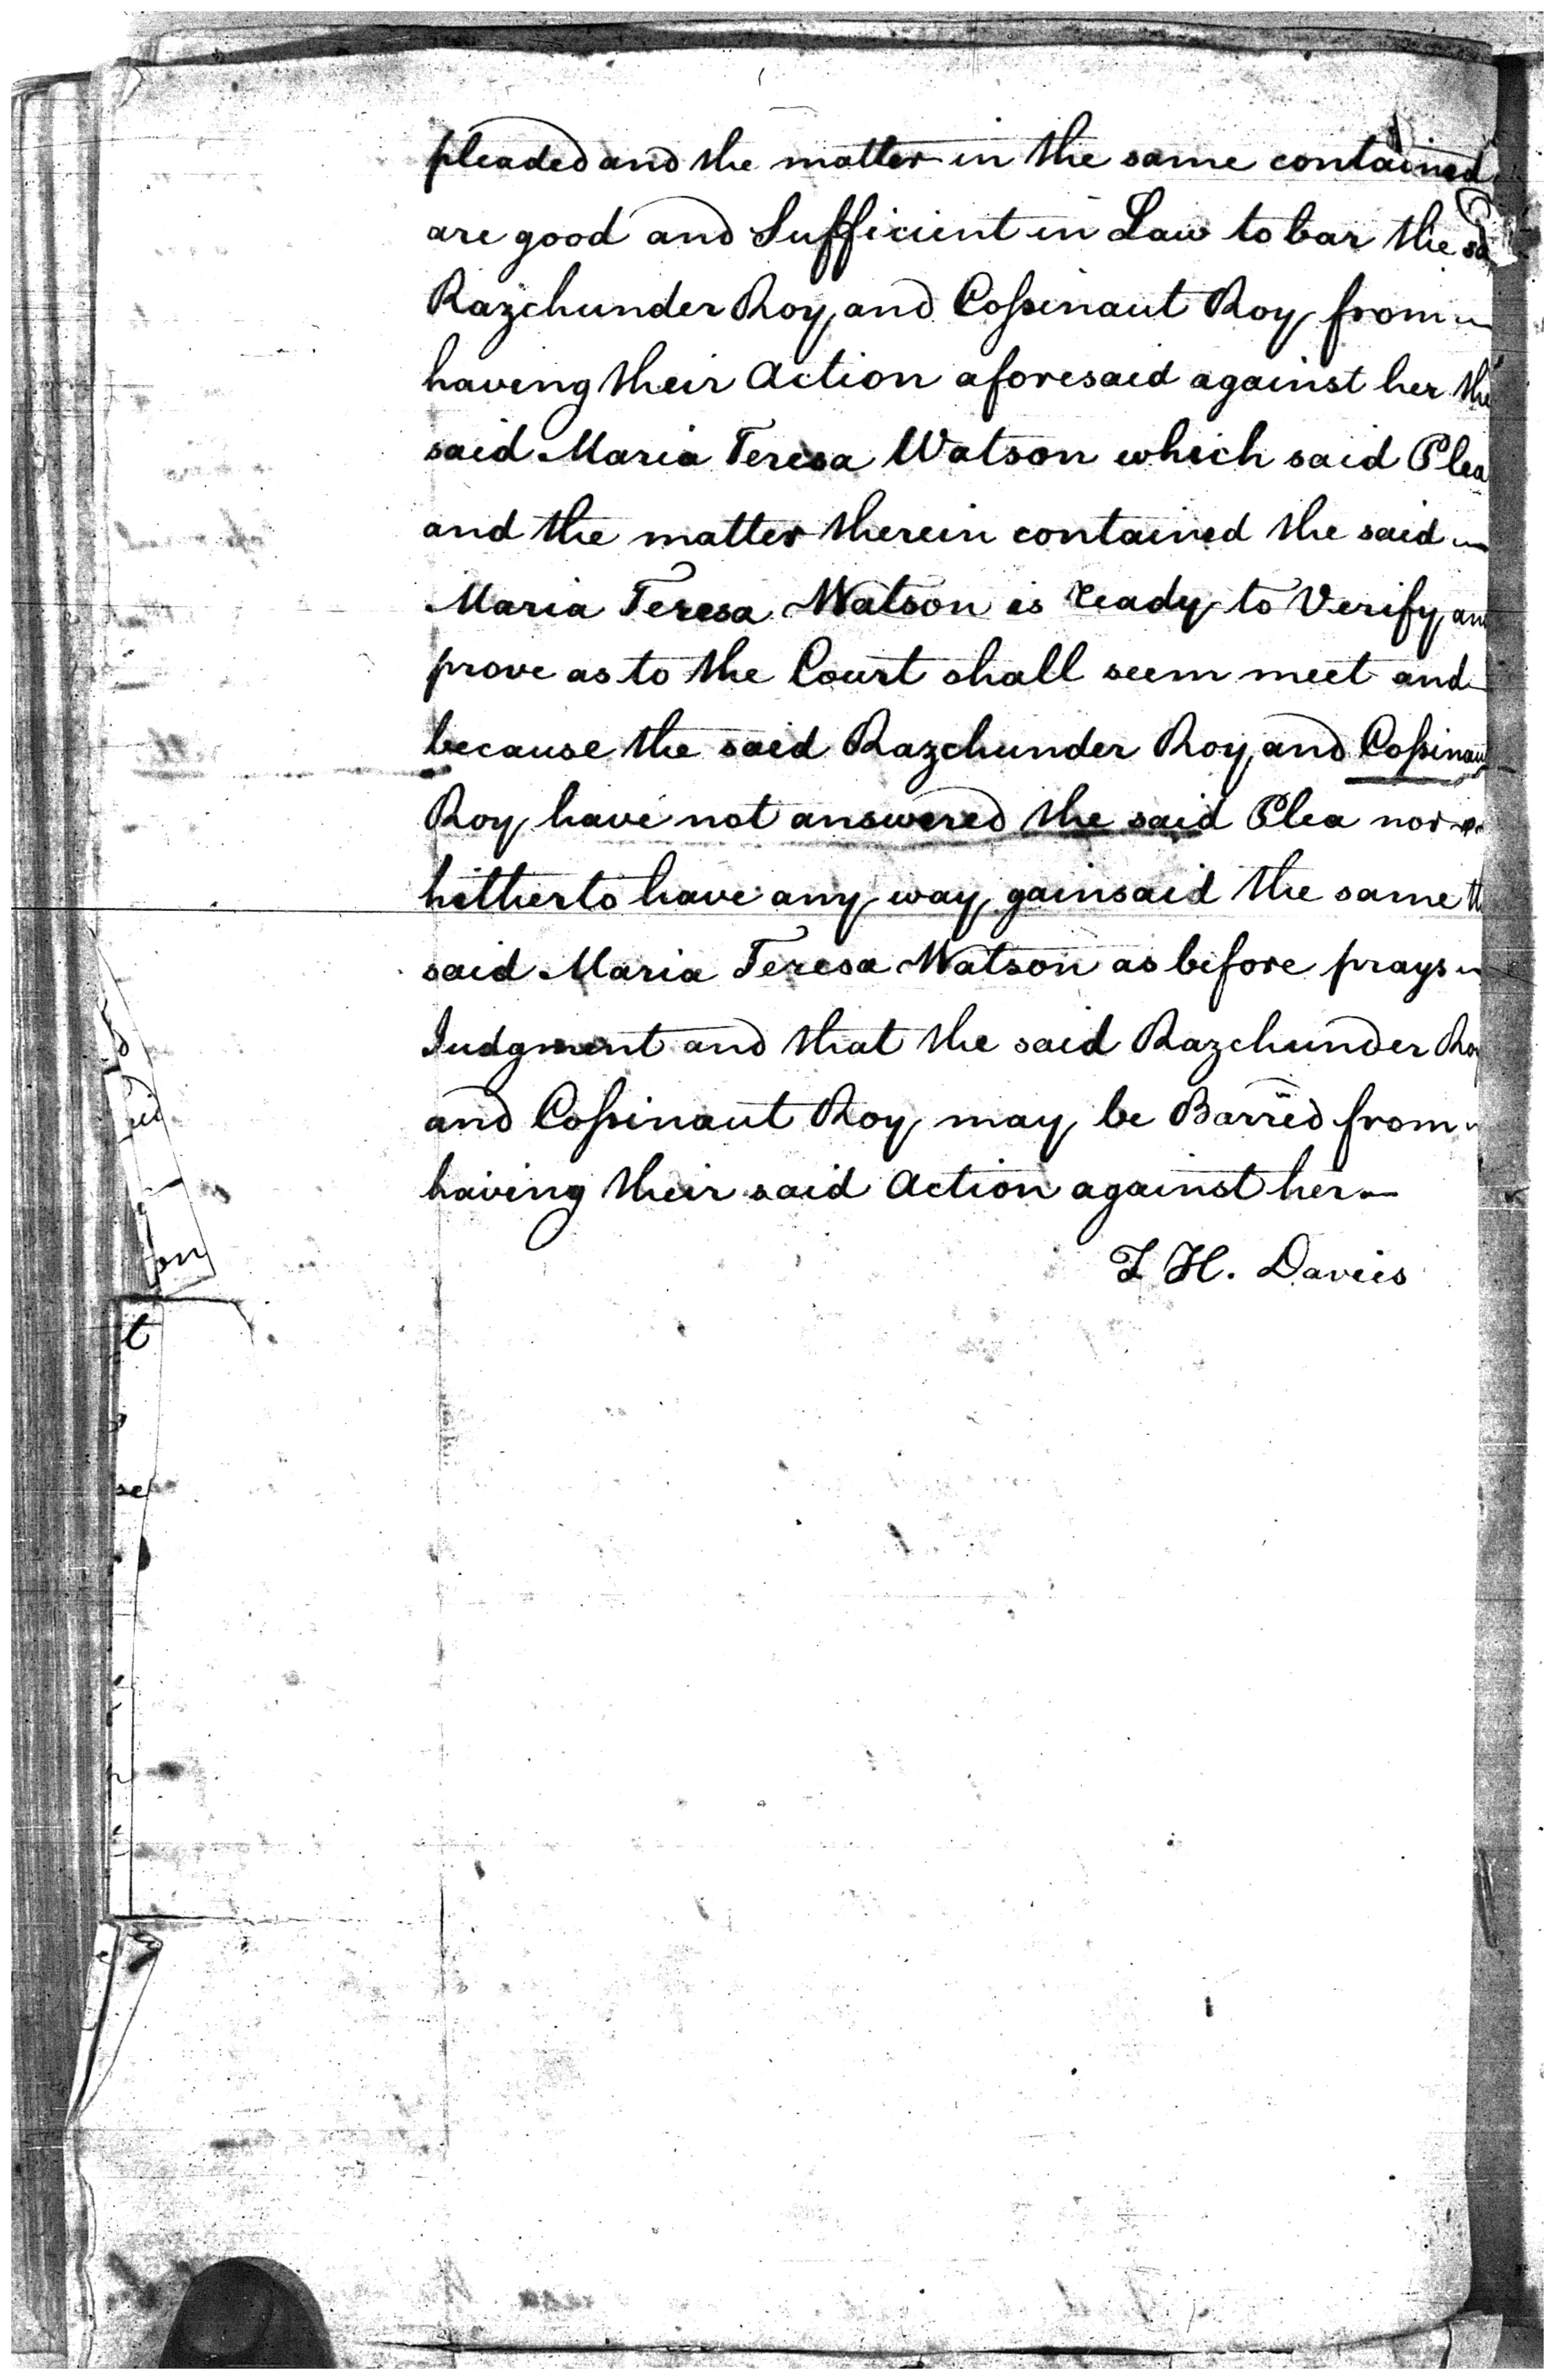 pleaded and the matter in the same contained
are good and Sufficient in Law to bar the sd
Razchunder Roy and Cossinaut Roy from
having their Action aforesaid against her the
said Maria Teresa Watson which said Plea
and the matter therein contained the said
Maria Teresa Watson is ready to Verify and
prove as to the Court shall seem meet and
because the said Razchunder Roy and Cossinaut
Roy have not answered the said Plea nor
hitherto have any way gainsaid the same the
said Maria Teresa Watson as before prays
Judgment and that the said Razchunder Roy
and Cossinaut Roy may be Barred from
having their said Action against her
T H. Davies